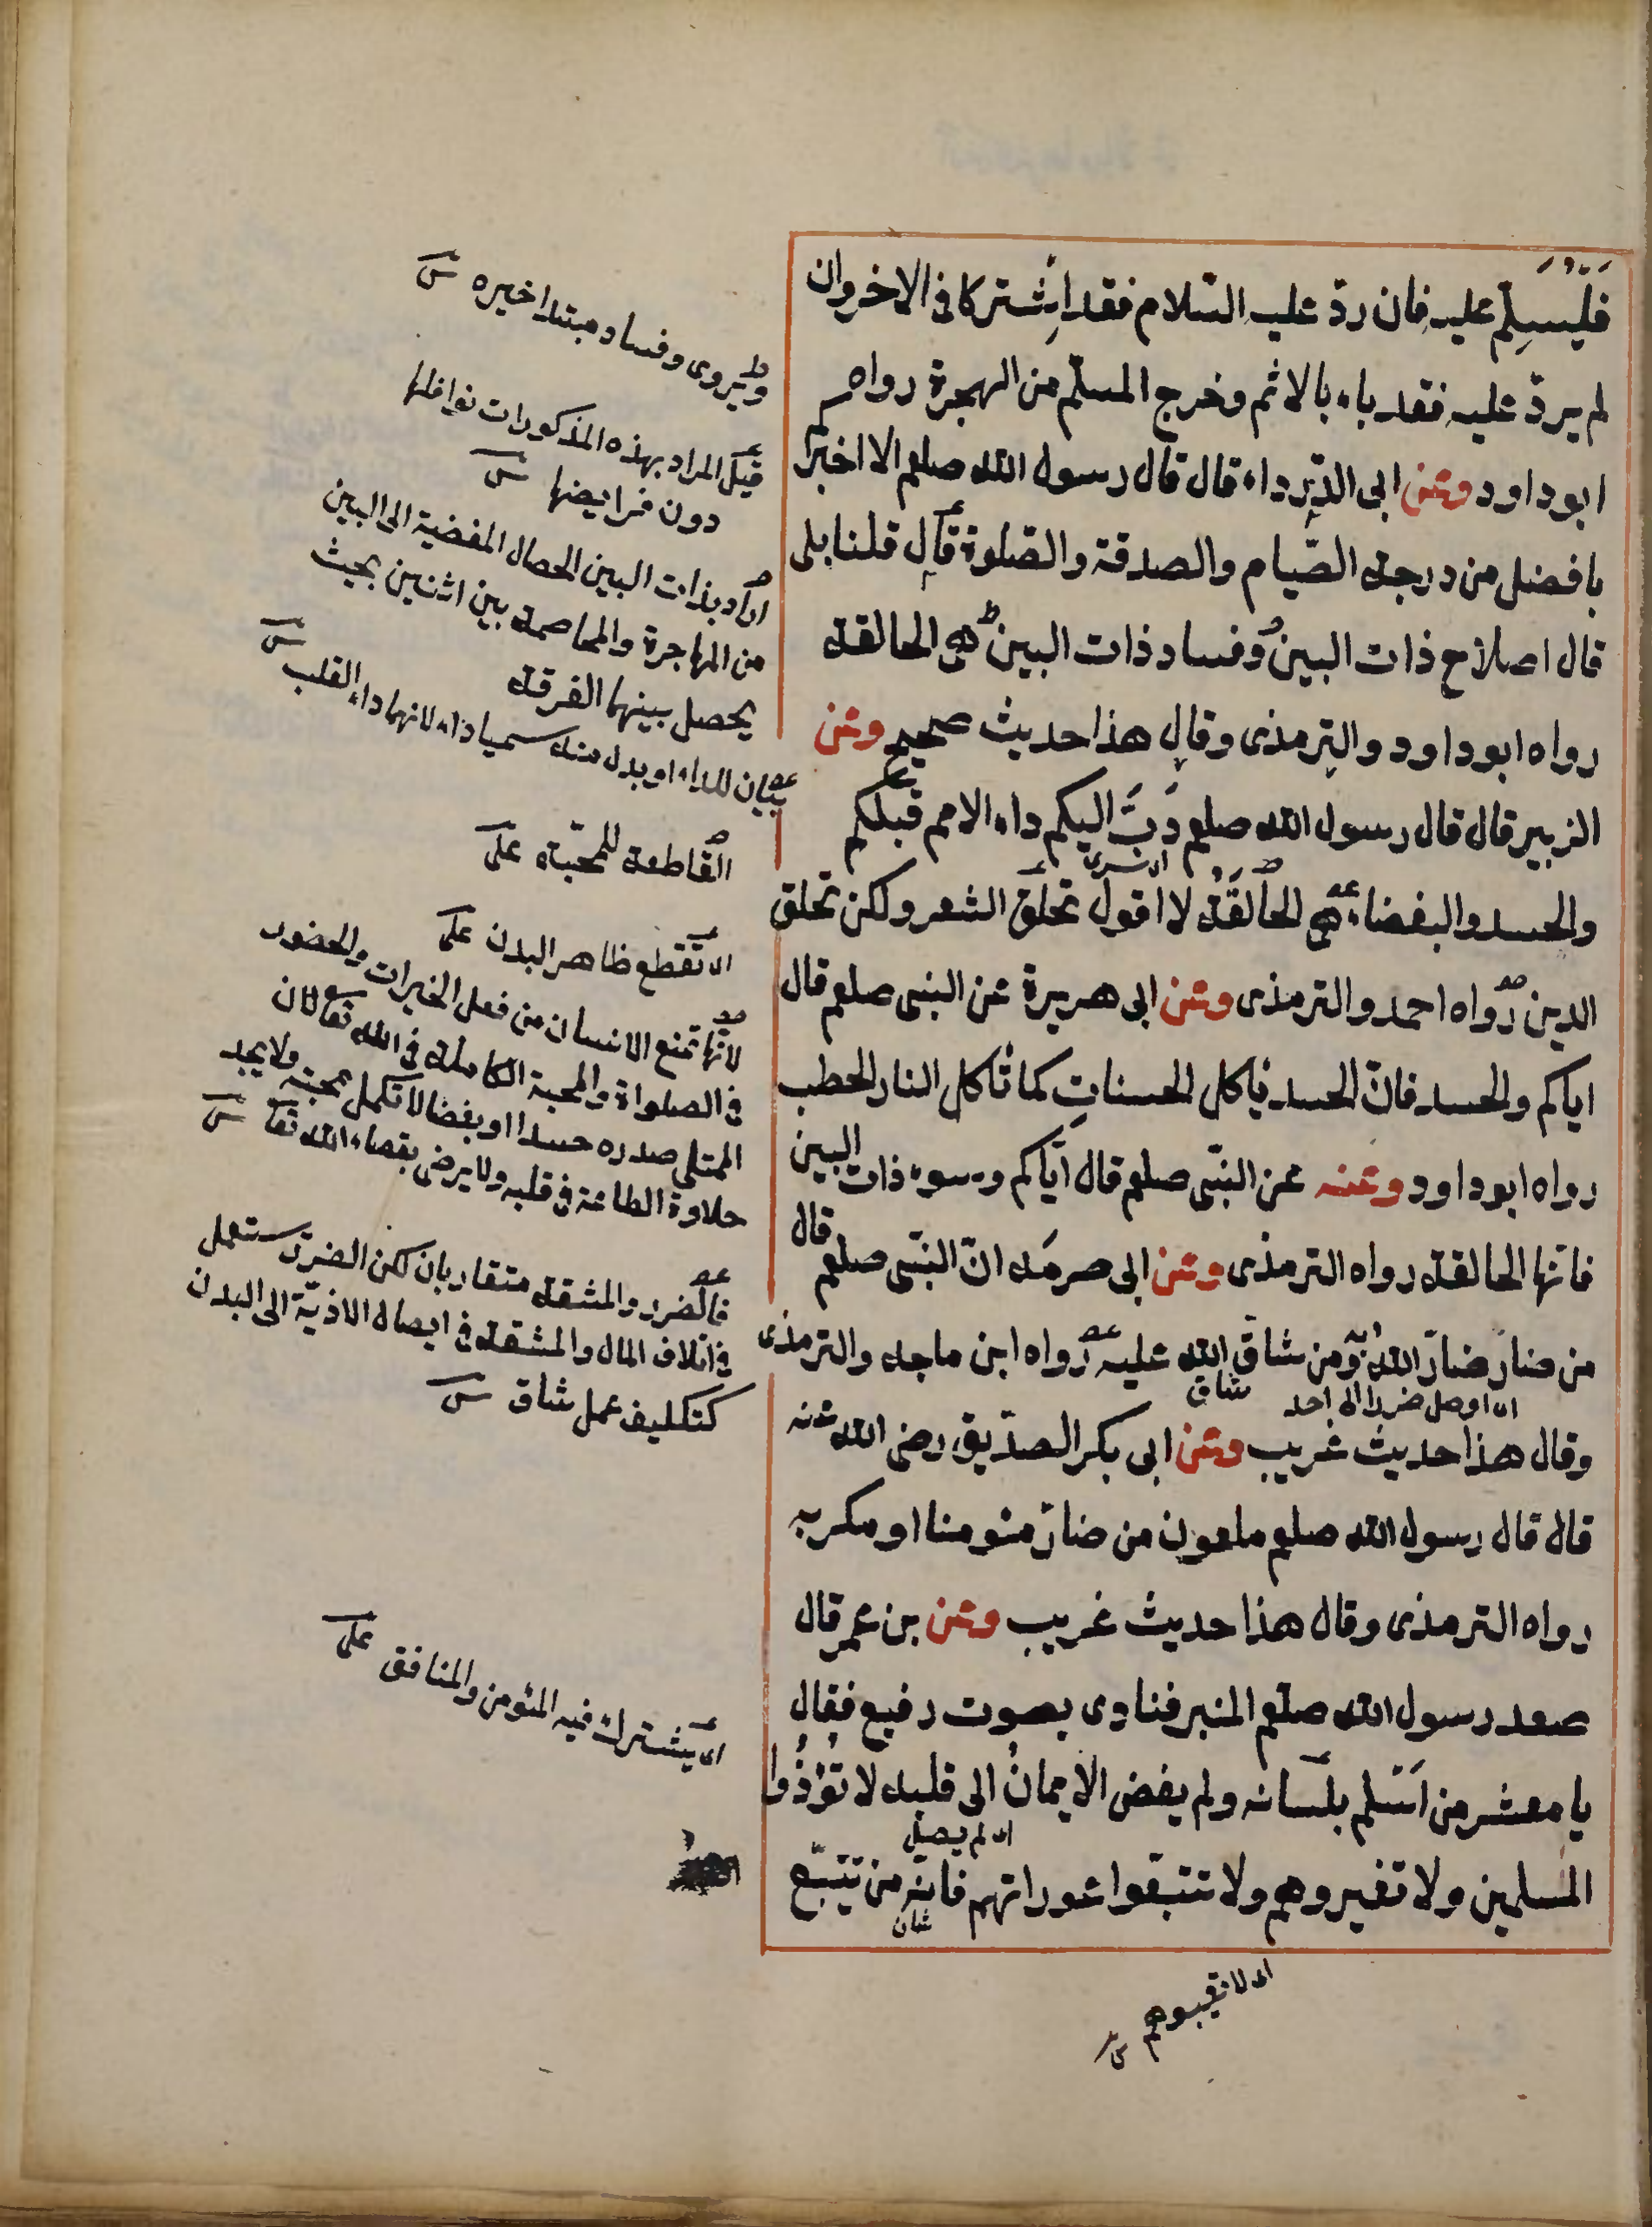 فَلْيُسَلِّمْ عليه فان ردّ عليه السّلام فقد اشتركا فى الاخر وان
لم يردّ عليه فقد باء بالاثم وخرج المسلّم من الهجرة رواه
ابوداود وعن ابى الدّرداء قال قال رسول الله صلعم الا اخبركم
بافضل من درجة الصّيام والصدقة والصّلوة قال قلنا بلى
قال اصلاح ذات البين وفساد ذات البين هى الحالقة
رواه ابوداود والترمذى وقال هذا حديث صحيح وعن
الزبير قال قال رسول الله صلعم دَبَّ اليكم داء الامم قبلكم
والحسد والبغضاء هى الحالقة لا اقول تحلق الشعر ولكن تحلق
الدين رواه احمد والترمذى وعن ابى هريرة عن النبى صلعم قال
اياكم والحسد فانّ الحسد ياكل الحسناتِ كما تأكل النار الحطب
رواه ابوداود وعنه عن النبّى صلعم قال ايّاكم وسوء ذات البين
فانّها الحالقة رواه الترمذى وعن ابى صرمَه انّ النبّى صلعم قال
من ضارّ ضارّ الله به ومن شاقّ الله عليه رواه ابن ماجه والترمذى
اى اوصل ضررا الى احد
شاق
وقال هذا حديث غريب وعن ابى بكر الصدّيق رضى الله عنه
قال قال رسول الله صلعم ملعون من ضارّ مئومنا او مكر به
رواه الترمذى وقال هذا حديث غريب وعن بن عمر قال
صعد رسول الله صلعم المنبر فنادى بصوت رفيع فقال
يا معشر من اسلم بلسانه ولم يفض الايمانُ الى قلبه لا تؤذُوا
اى لم يصل
المسلمين ولا تغيروهم ولا تتبعوا عوراتهم فانّه من تتبّع
شان
اى لا تعيبوهم
ويروى وفساد مبتدا خيره
قيل المراد بهذه المذكورات نوافلها
دون فرايضها
اراد بذات البين الحصال المفضية الى البين
من المهاجرة والمخاصمة بين اثنين بحيث
يحصل بينهما الفرقة
بيان للداء او بدل منه سميا داء لانهما داء القلب
القاطعة للمحبّة
اى تقطع ظاهر البدن
لانّها تمنع الانسان من فعل الخيرات والحضور
فى الصلواة والمحبة الكاملة فى الله تعالى لان
الممتلى صدره حسدا او بغضا لا تكمل محبته ولا يجد
حلاوة الطاعة فى قلبه ولا يرضى بقصاء الله تعا
فالضرر والمشقة متقاربان لكن الضرر يستعمل
فى اتلاف المال والمشقة فى ايصال الاذيّة الى البدن
كتكليف عمل شاق
اى يشترك فيه المئومن والمنافق